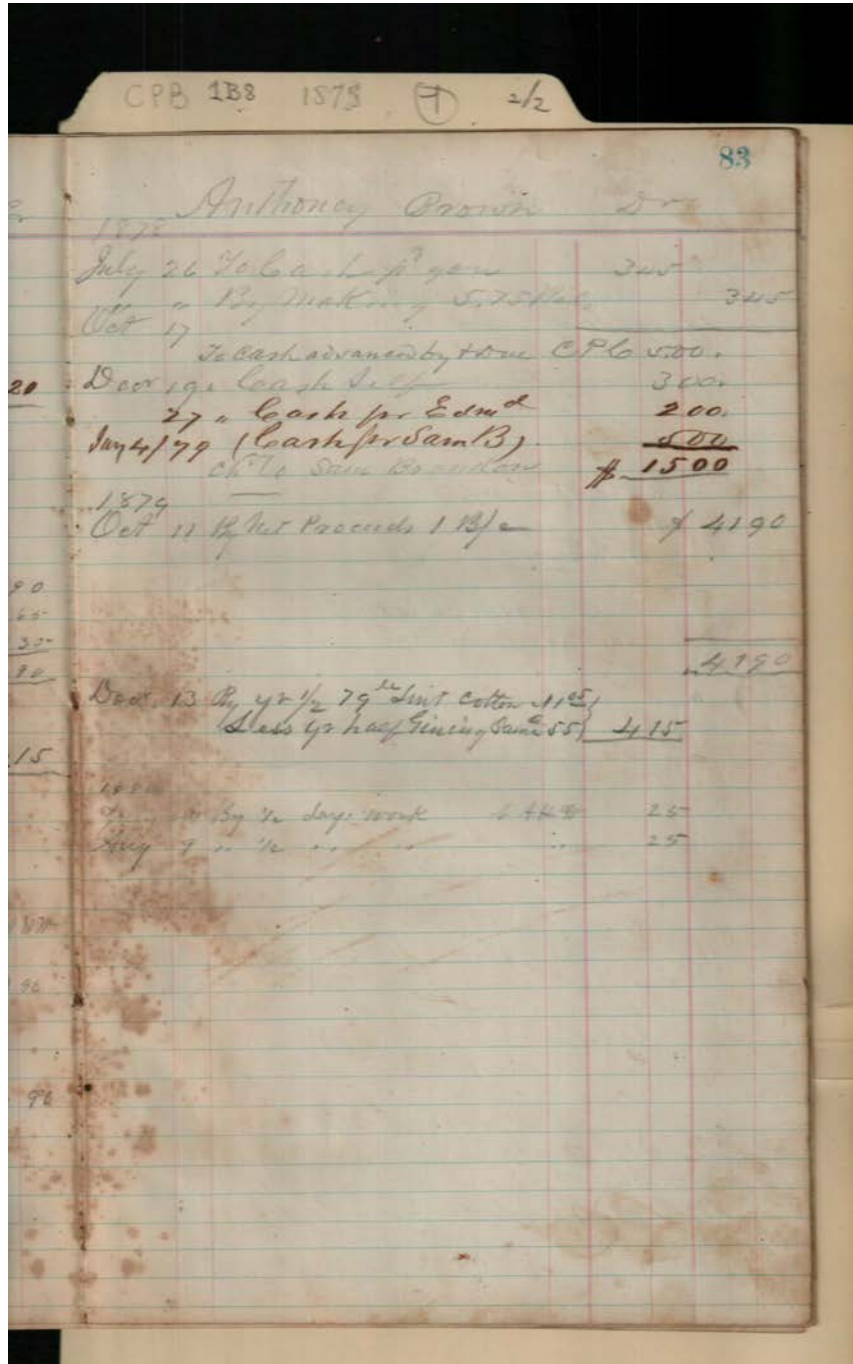 CPB 1B8 1878 1 2/2
83
Anthoney Brown Dr
1878
July 26 To Cash pd you 345
" By Making 5.75 345
Oct 17
To Cash advanced by CPB 5.00.
Decr 19 " Cash Self 300.
20
27 " Cash pr Edmd 200.
Jany 4/79 (Cash pr Sam B) 500
Chd to Sam Brandon $ 1500
1879
Oct 11 By Net Proceeds 1 B/c 4190
90
65
35
90
4190
Decr 13 By yr 1/2 79 lbs Lint Cotton
Less yr half Gining Same 55) 415
15
1880
By 1/2 days work 25
Aug 9 " 1/2 " " " 25
96
96